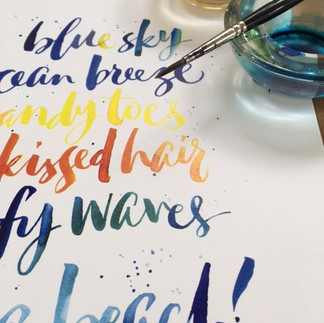 blue sky
ocean breeze
sandy toes
kissed hair
fy waves
beach!